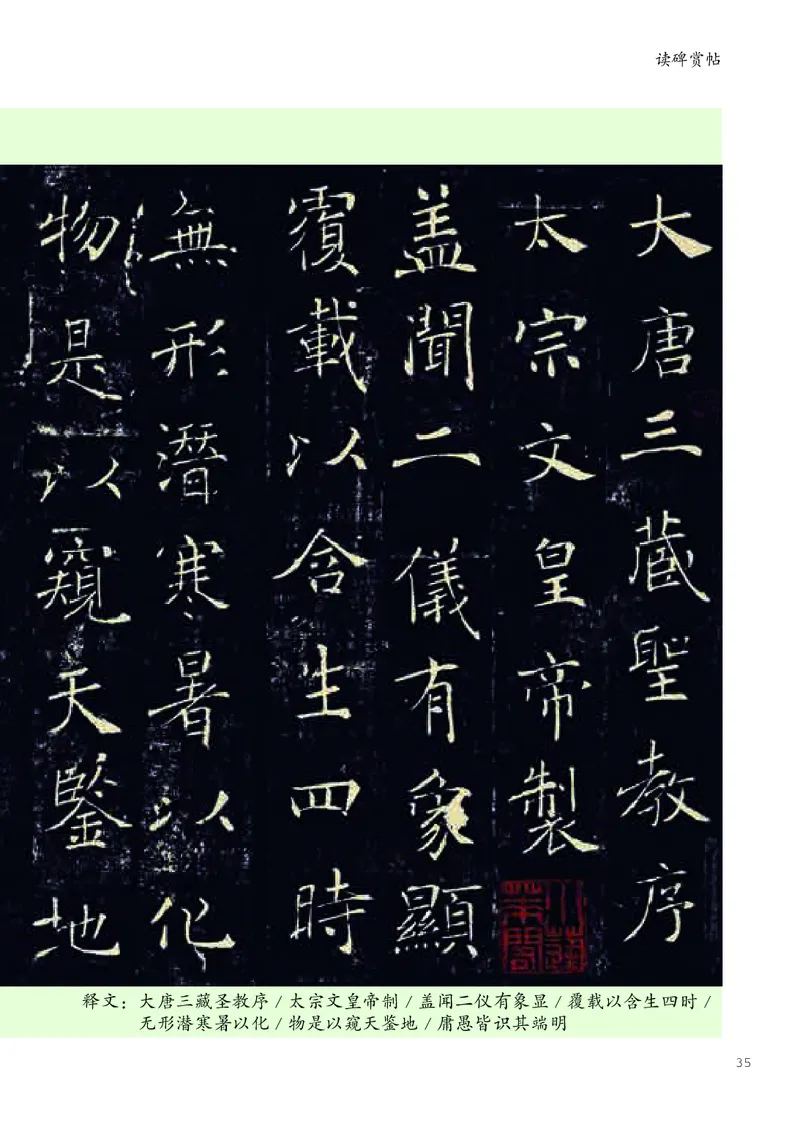 读碑赏帖
大唐三藏聖教序
太宗文皇帝製
盖聞二儀有象顯
覆載以含生四時
無形潛寒暑以化
物是以窺天鑒地
释文：大唐三藏圣教序 / 太宗文皇帝制 / 盖闻二仪有象显 / 覆载以含生四时 /
无形潜寒暑以化 / 物是以窥天鉴地 / 庸愚皆识其端明
35